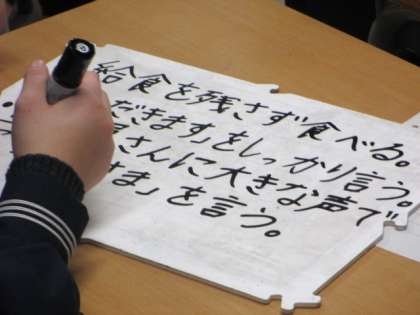 給食を残さず食べる。
だきます」をしっかり言う。
さんに大きな声で
さま」を言う。